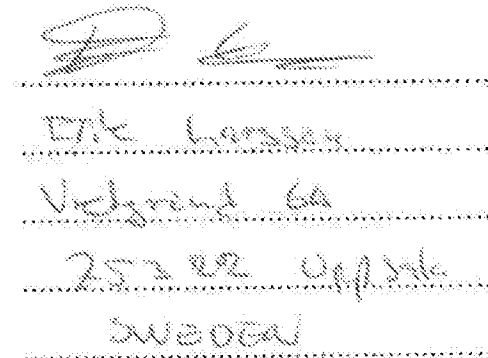 Erik Larsson
Vretgränd 6A
753 22 Uppsala
SWEDEN